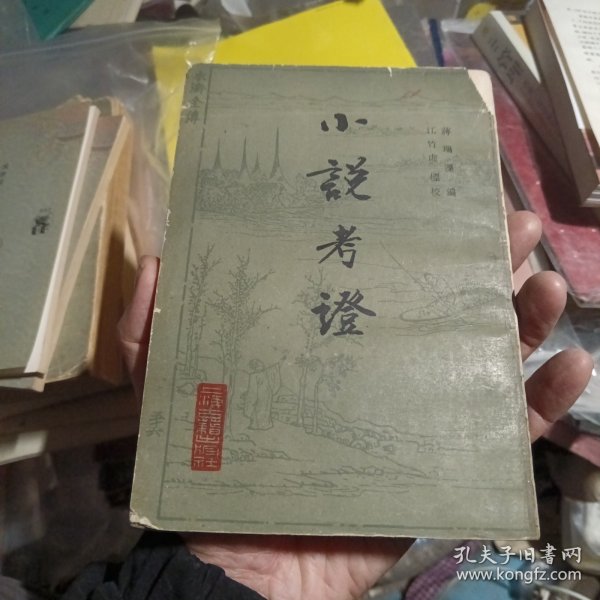 小説考證
蔣瑞藻 編
江竹虚 標校
上海古籍出版社
孔夫子旧书网
www.kongfz.com